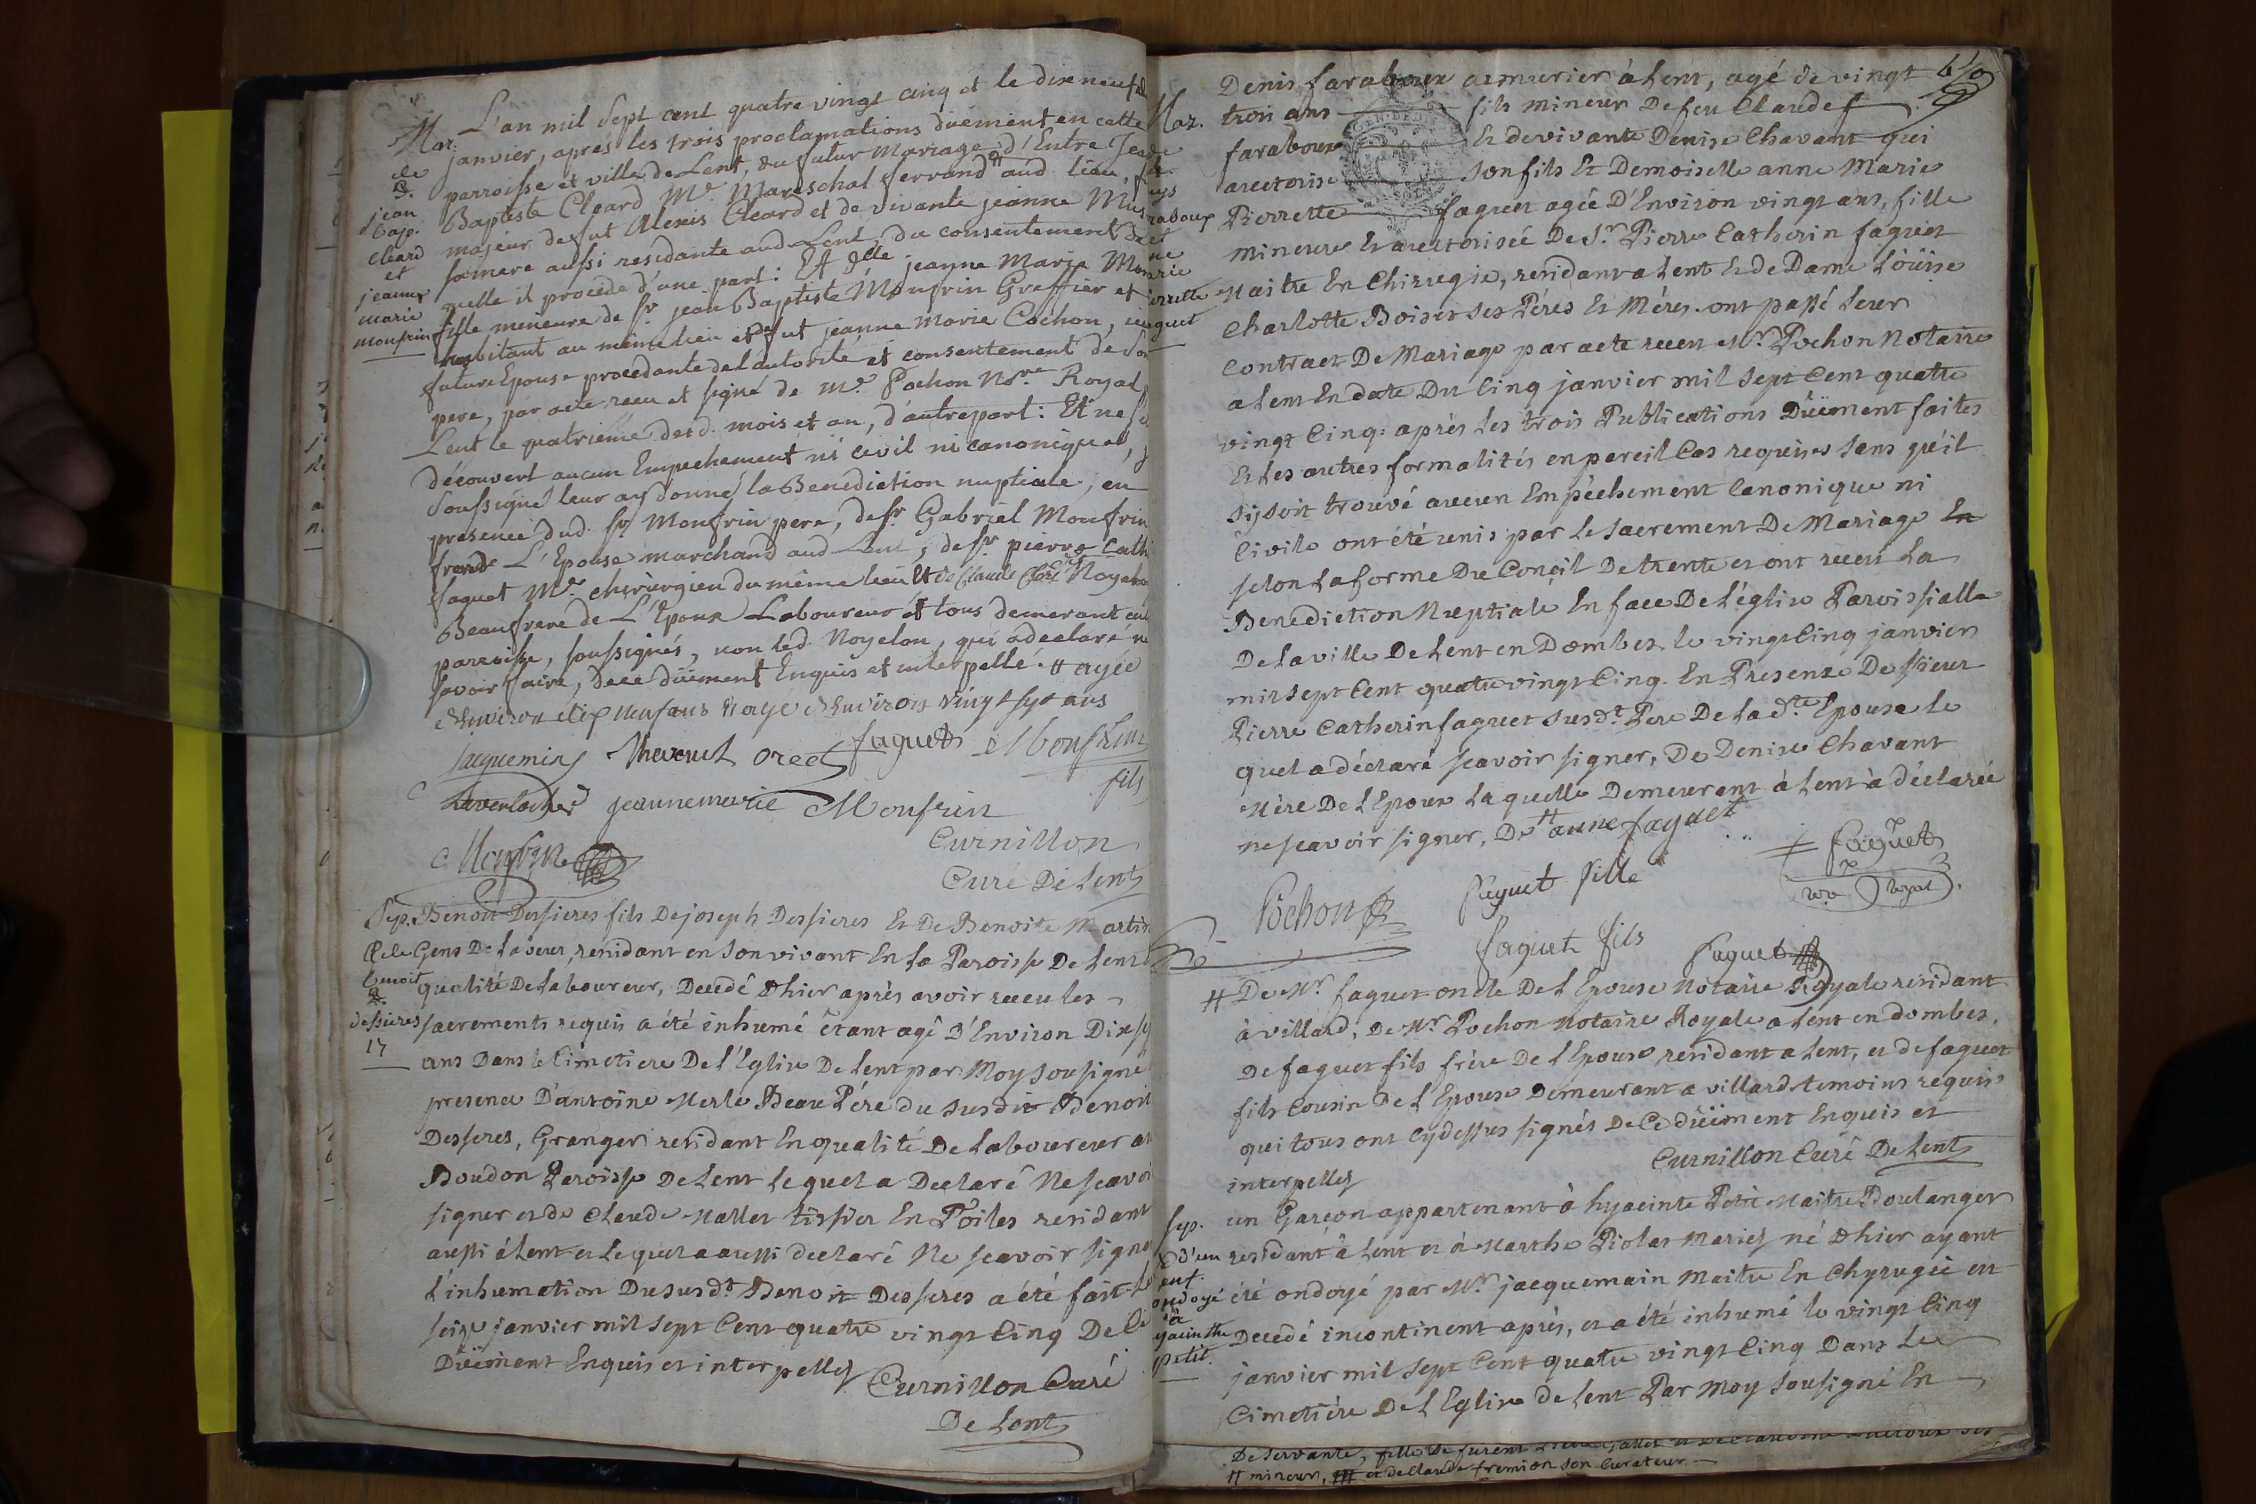 Mar.
de
S.
jean
bap.
Cleard
et
jeanne
marie
monfrin
L'an mil sept cent quatre vingt cinq et le dix neuf
janvier, aprés les trois proclamations düement en cette
parroisse et ville de Lent, du futur Mariage d'Entre Jean
Baptiste Cleard Me Mareschal ferrand aud. lieu, fils
majeur de fut Alexis Cleard et de vivante jeanne
sa mere aussi residante aud. Lent, du consentement de
quelle il procede d'une part: Et dlle jeanne Marie Mon
fille meneure de Sr jean Baptiste Monfrin Greffier et
habitant au même lieu et de fut jeanne Marie Cochon,
future Epouse procedante de l'autorité et consentement de son
pere, par acte receu et signé de Me Pochon Nore Royal
Lent le quatriéme desd. mois et an, d'autre part: Et ne
découvert aucun Empechement ni civil ni canonique,
soussigné leur ay donné la Benediction nuptiale, en
presence dud. Sr Monfrin pere, de Sr Gabriel Monfrin
frere de L'Epouse marchand aud. Lent, de Sr pierre Cath
faguet Me chirurgien du même lieu Et de Claude Noyelon
Beaufrere de L'Epoux Laboureur et tous demeurant en
parroisse, soussignés, non led. Noyelon, qui a declaré ne
savoir faire, de ce düement Enquis et interpellé. # agée
d'Environ dix neuf ans et agé d'Environ vingt sept ans
Jacquemin Thevenet faguet Monfrin
fils
jeanne marie Monfrin
Monfrin
Curnillon
Curé De Lent
Sep.
De
benoit
dessieres
17
Benoit Dessieres fils De joseph Dessieres Et De Benoite Martin
Gens De Labeur, residant en son vivant En La Paroisse De Lent
qualité De laboureur, Decedé Dhier après avoir receu les
sacrements requis a été inhumé étant agé D'Environ Dix sept
ans Dans le Cimetiere De l'Eglise De Lent par Moy sousigné
presence D'antoine Merle Beau Pére du susdit Benoit
Desseres, Granger residant En qualité De Laboureur au
Boudon Paroisse De Lent Lequel a Declaré Ne scavoir
signer et de Claude Mallet tissier En Toiles residant
aussi á Lent et Lequel a aussi declaré Ne scavoir signer
L'inhumation Du susdt Benoit Desseres a été fait le
seize janvier mil sept Cent quatre vingt Cinq De Ce
Düement Enquis et interpellez
Curnillon Curé
De Lent
Mar.
raboux
pierrette
faguet
Denis faraboux armurier à Lent, agé de vingt
trois ans fils mineur De feu Claude
faraboux Et de vivante Denise Chavant qui
auctorise son fils Et Demoiselle anne Marie
Pierrette faguet agée D'Environ vingt ans, fille
mineure Et auctorisée De Sr Pierre Catherin faguet
Maitre En Chirurgie, residant a Lent Et de Dame Loüise
Charlotte Boisset ses Péres Et Méres. ont passé leur
Contract De Mariage par acte receu Mr Pochon Notaire
a Lent En date Du Cinq janvier mil sept Cent quatre
vingt Cinq: après Les trois Publications Düement faites
Et les autres formalités en pareil Cas requises sans qu'il
s'y soit trouvé aucun Empêchement Canonique ni
Civile ont été unis par Le sacrement De Mariage En
selon La forme Du Concil De trente et ont receu La
Benediction Nuptiale En face De L'église Paroissialle
De La ville De Lent en Dombes le vingt Cinq janvier
mil sept Cent quatre vingt Cinq. En Presense De sieur
Pierre Catherin faguet susdt Pere De La dte Epouse le
quel a déclaré scavoir signer, De Denise Chavant
Mère De L'Epoux Laquelle Demeurant à Lent à déclarée
ne scavoir signer, De # anne faguet
faguet
Pochon
faguet fille
not. royal
faguet fils
faguet
# De Mr faguet oncle De L'Epouse Notaire Royale residant
à villard, De Mr Pochon Notaire Royale a Lent en dombes,
De faguet fils frère De L'Epouse residant a Lent, et de faguet
fils Cousin De L'Epouse Demeurant a villard temoins requis
qui tous ont Cydessus signés De Ce düement Enquis et
interpellez
Curnillon Curé De Lent
Sep.
d'un
enf.
ondoyé
à
yacinthe
petit.
un Garçon appartenant à hyacinte Petit Maitre Boulanger
residant à Lent et à Marthe Piolat Mariez né Dhier ayant
été ondoyé par Mr jacquemain Maitre En Chyrugie et
Decedé incontinent après, et a été inhumé le vingt Cinq
janvier mil sept Cent quatre vingt Cinq Dans Le
Cimetière De L'Eglise de Lent Par Moy sousigné En
De servante, fille de
# mineur, et de Claude fremion son Curateur